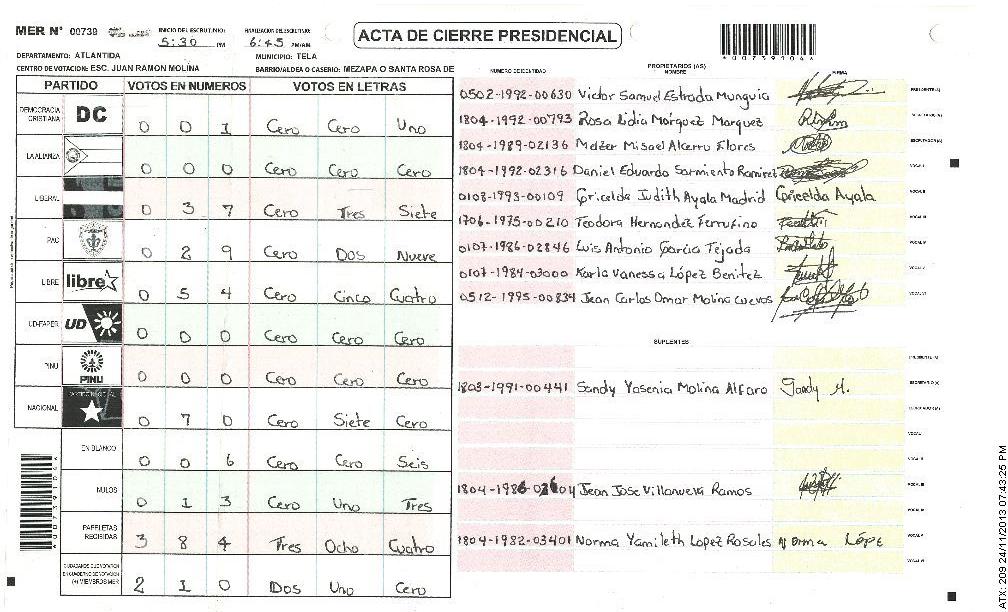 MER N° 00739
INICIO DEL ESCRUTINIO: 5:30 PM
FINALIZACION DEL ESCRUTINIO: 6:45 PM/AM
ACTA DE CIERRE PRESIDENCIAL
*007391064*
DEPARTAMENTO: ATLANTIDA
MUNICIPIO: TELA
CENTRO DE VOTACION: ESC. JUAN RAMON MOLINA
BARRIO/ALDEA O CASERIO: MEZAPA O SANTA ROSA DE
PARTIDO VOTOS EN NUMEROS VOTOS EN LETRAS
DEMOCRACIA CRISTIANA DC 0 0 1 Cero Cero Uno
LA ALIANZA 0 0 0 Cero Cero Cero
LIBERAL 0 3 7 Cero Tres Siete
PAC 0 2 9 Cero Dos Nueve
LIBRE libre 0 5 4 Cero Cinco Cuatro
UD-FAPER UD 0 0 0 Cero Cero Cero
PINU PINU 0 0 0 Cero Cero Cero
NACIONAL 0 7 0 Cero Siete Cero
EN BLANCO 0 0 6 Cero Cero Seis
NULOS 0 1 3 Cero Uno Tres
PAPELETAS RECIBIDAS 3 8 4 Tres Ocho Cuatro
(+) MIEMBROS MER 2 1 0 Dos Uno Cero
PROPIETARIOS (AS)
NUMERO DE IDENTIDAD NOMBRE FIRMA
0502-1992-00630 Victor Samuel Estrada Munguia PRESIDENTE (A)
1804-1992-00793 Rosa Lidia Marquez Marquez SECRETARIO (A)
1804-1989-02136 Melzer Misael Alcerro Flores ESCRUTADOR (A)
1804-1992-02316 Daniel Eduardo Sarmiento Ramirez VOCAL I
0108-1993-00109 Gricelda Judith Ayala Madrid Gricelda Ayala VOCAL II
1706-1975-00210 Teodora Hernandez Ferrufino VOCAL III
0107-1986-02846 Luis Antonio Garcia Tejada VOCAL IV
0107-1984-03000 Karla Vanessa López Benitez VOCAL V
0512-1995-00834 Jean Carlos Omar Molina Cuevas VOCAL VI
SUPLENTES
PRESIDENTE (A)
1803-1991-00441 Sandy Yasenia Molina Alfaro Sandy M. SECRETARIO (A)
ESCRUTADOR (A)
VOCAL I
VOCAL II
Jean Jose Villanueva Ramos VOCAL III
VOCAL IV
1804-1982-03401 Norma Yamileth Lopez Rosales Norma Lópe VOCAL V
VOCAL VI
ATX: 209 24/11/2013 07:43:25 PM